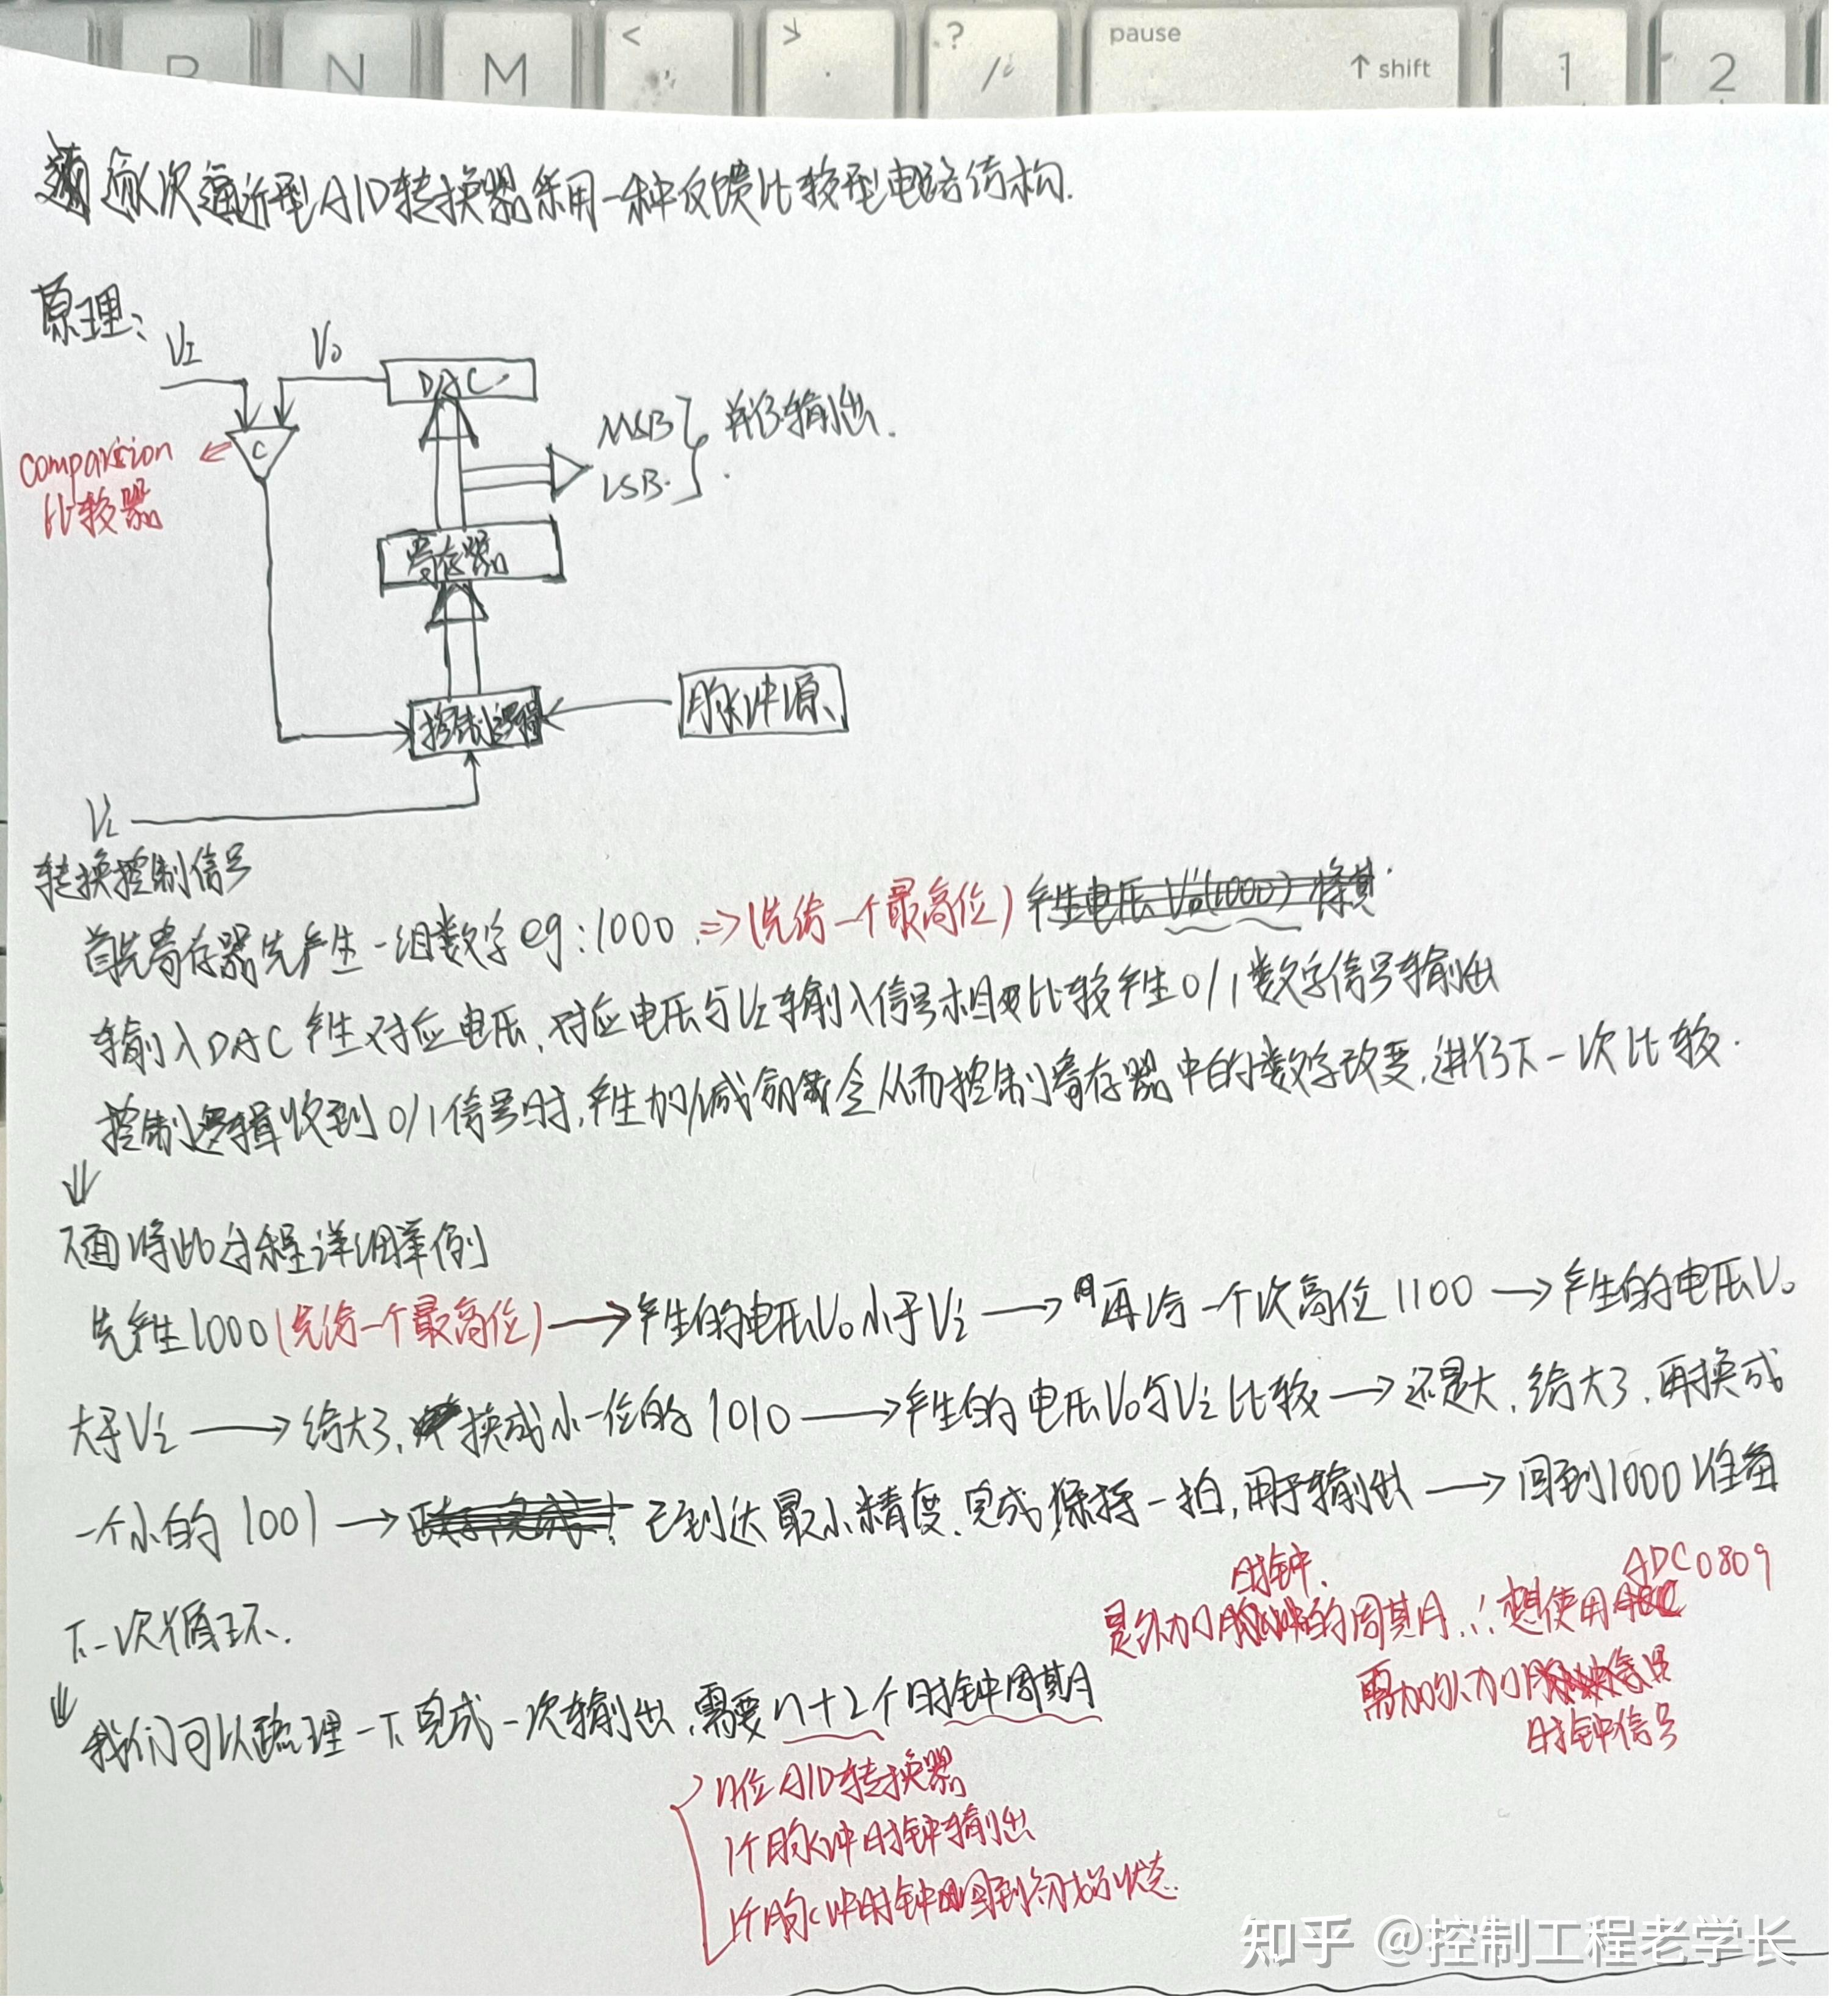 N M < > ? / pause ↑ shift 1 2
逐次逼近型A/D转换器采用一种反馈比较型电路结构.
原理:
VI Vo DAC
C
MSB
LSB. } 并行输出.
comparision
比较器
寄存器
控制逻辑
脉冲源
VL
转换控制信号
首先寄存器先产生一组数字eg:1000 => (先给一个最高位) 产生电压Vo(1000) 将其
输入DAC产生对应电压,对应电压与VI输入信号相比较产生0/1数字信号输出
控制逻辑收到0/1信号时,产生加/减命令从而控制寄存器中的数字改变,进行下一次比较.
下面将此过程详细举例
先产生1000(先给一个最高位)→产生的电压Vo小于Vi→再给一个次高位1100→产生的电压Vo
大于Vi→给大了,换成小一位的1010→产生的电压Vo与Vi比较→还是大,给大了,再换成
一个小的1001→已到达最小精度,完成,保持一拍,用于输出→回到1000准备
下一次循环.
时钟.
ADC0809
是外加的周期,∴想使用
需外加
时钟信号
我们可以疏理一下完成一次输出,需要n+2个时钟周期
n位A/D转换器
1个脉冲时钟输出
1个脉冲时钟回到初始状态.
知乎 @控制工程老学长